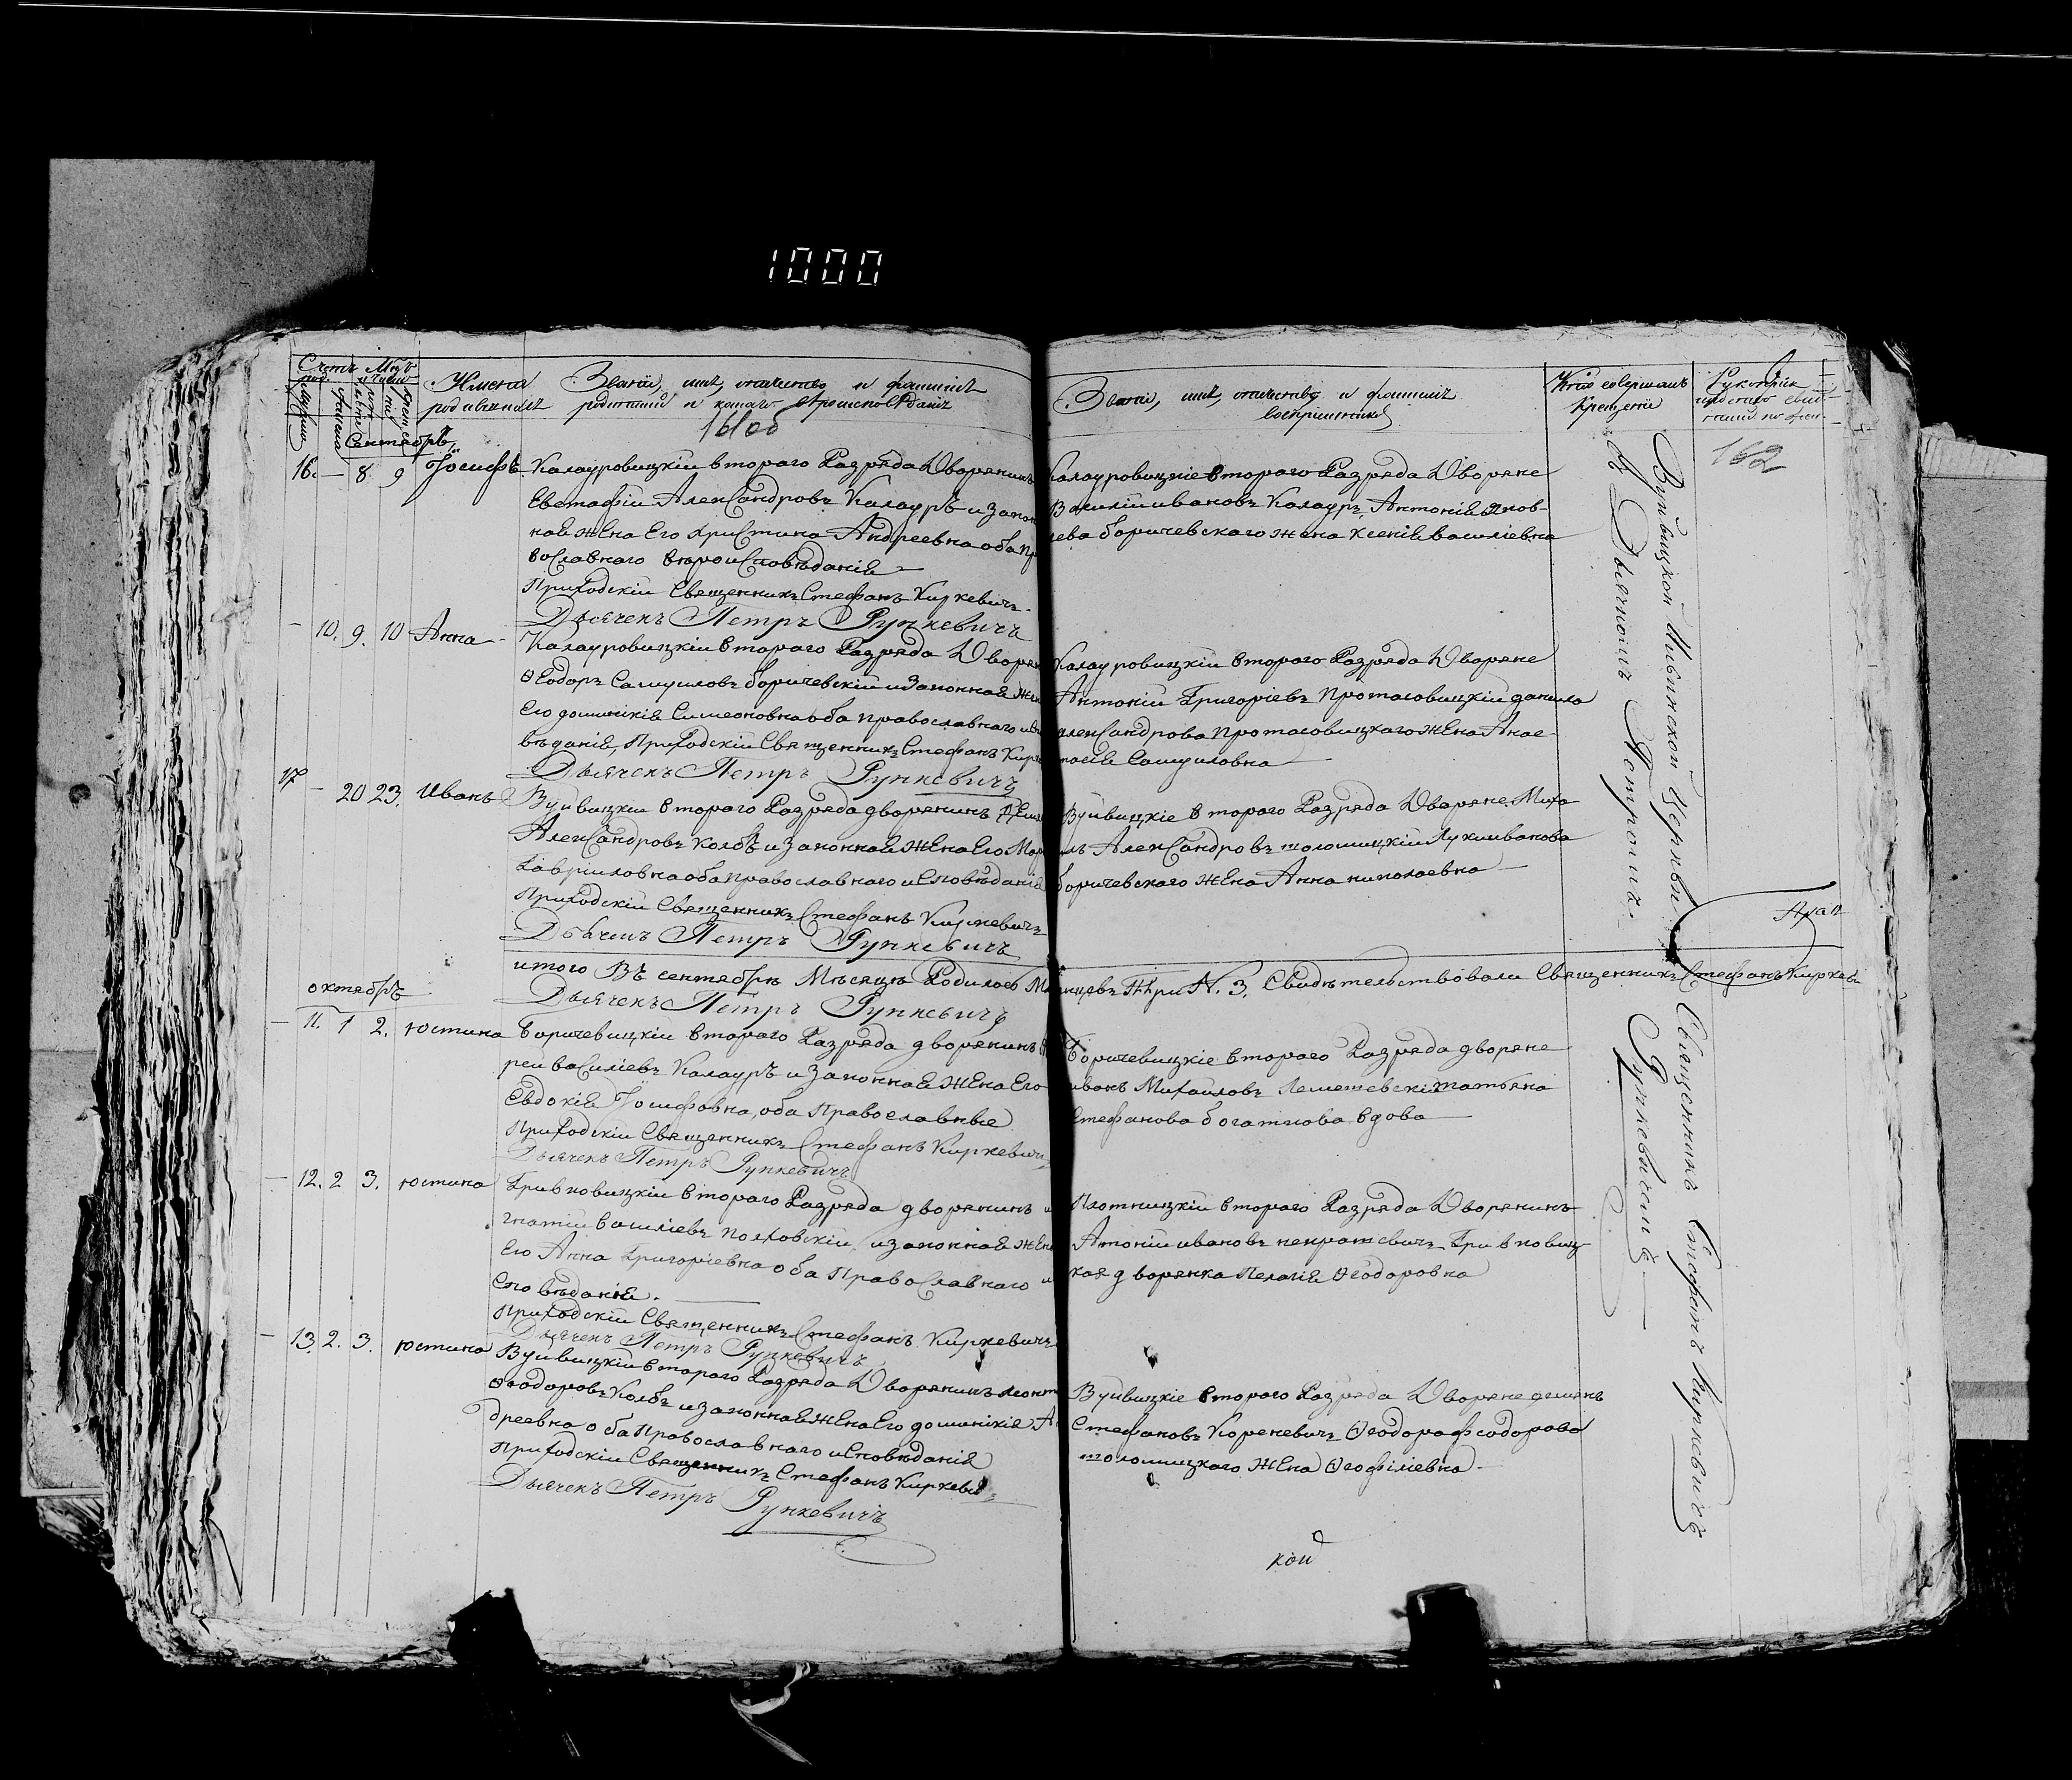 1000
Счетъ род.
Имена родившихся
Званіе, имя, отчество и фамилія
родителей и какого вѣроисповѣданія
Званіе, имя, отчество и фамилія
воспріемниковъ
Кто совершалъ
крещеніе
162
Сентябрь
16. — 8 9 Іосифъ
Калауровицкіи втораго Разряда Дворянинъ
Евстафіи Александровъ Калауръ и Закон
ная жена Его Христина Андреевна оба Пр
вославного вѣроисповѣданія
Приходскіи Священникъ Стефанъ Киркевичъ
Дьячекъ Петръ Рункевичъ
Калауровицкіе втораго Разряда Дворяне
Василіи ивановъ Калауръ, Антонія Яков-
лева боричевского жена Ксенія василіевна
— 10. 9. 10 Анна
Калауровицкіи втораго Разряда Дворян
Ѳеодоръ Самуиловъ боричевскіи и Законная жен
Его домникія Симеоновна оба православнаго
вѣданія, Приходскіи Священникъ Стефанъ Кирк
Дьячекъ Петръ Рункевичъ
Калауровицкіи втораго Разряда Дворяне
Антоніи Григоріевъ Протасовицкіи данила
александрова Протасовицкаго жена Анас-
тасія Самуиловна
17 — 20 23. Иванъ
Вуйвицкіи втораго Разряда дворянинъ
Александровъ Колбъ и Законная жена Его Мар
Гавриловна оба православнаго исповѣданія
Приходскіи Священникъ Стефанъ Киркевичъ
Дьячекъ Петръ Рункевичъ
Вуйвицкіе втораго Разряда Дворяне Миха
илъ Александровъ толошицкіи Луки иванова
боричевского жена Анна николаевна
итого Въ сентябрѣ Мѣсяцѣ Родилось Мла
денцевъ Три N. 3. Свидѣтельствовали Священникъ Стефанъ Киркеви
Дьячекъ Петръ Рункевичъ
октябрь
— 11. 1 2. юстина
Боричевицкіи втораго Разряда дворянинъ Ан
реи василіевъ Калауръ и законная жена Его
Евдокія Іосифовна, оба Православные
Приходскіи Священникъ Стефанъ Киркевичъ
Дьячекъ Петръ Рункевичъ
Боричевицкіе втораго Разряда дворяне
иванъ Михаиловъ Лемешевскіи татьяна
Стефанова богаткова вдова
— 12. 2 3. юстина
Гривковицкіи втораго Разряда дворянинъ и
гнатіи василіевъ Полховскіи, и законная жена
Его Анна Григоріевна оба Православнаго и
споведанія.
Приходскіи Священникъ Стефанъ Киркевичъ
Дьячекъ Петръ Рункевичъ
Плотницкіи втораго Разряда Дворянинъ
Антоніи ивановъ некрашевичъ Гривковиц-
кая дворянка Пелагія Ѳеодоровна
— 13. 2. 3. юстина
Вуйвицкіи втораго Разряда Дворянинъ леонт
Ѳеодоровъ Колбъ и законная жена Его домникія Ан
дреевна оба Православнаго исповѣданія
Приходскіи Священникъ Стефанъ Киркевичъ
Дьячекъ Петръ Рункевичъ
Вуйвицкіе втораго Разряда Дворяне демянъ
Стефановъ Кореневичъ Ѳеодора феодорова
толошицкаго жена Ѳеофиліевна
Вуйвицкой Церкви Священникъ Стефанъ Киркевичъ
съ Дьячкомъ Петромъ Рункевичемъ